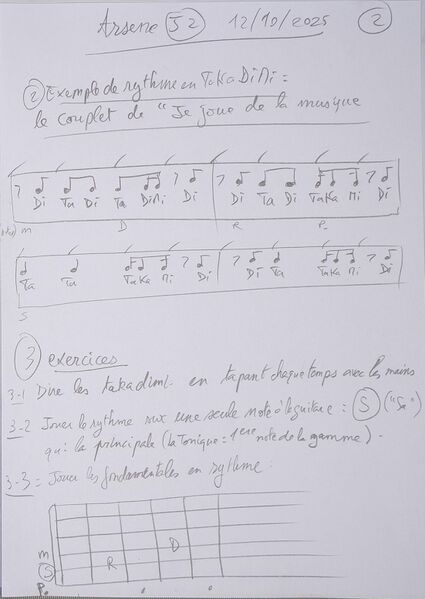 Arsene S2 12/10/2025 2
2 Exemple de rythme en TaKaDiMi =
le couplet de "Je joue de la musique
Di Ta Di Ta DiMi Di Di Ta Di TaKa Mi Di
m D R P.
Ta Ta TaKa Mi Di Di Ta TaKa Mi Di
S
3 exercices
3-1 Dire les takadimi en tapant chaque temps avec les mains
3-2 Jouer le rythme sur une seule note à la guitare = S
qui la principale (la Tonique = 1ere note de la gamme).
3-3 = Jouer les fondamentales en rythme :
D
m
R
S
P.